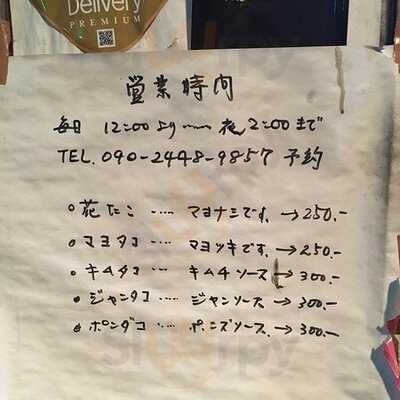 Delivery
PREMIUM
営業時間
毎日 12:00より〜夜2:00まで
TEL. 090-2448-9857 予約
○花たこ ‥‥ マヨナシです。→250.-
○マヨタコ ‥‥ マヨツキです。→250.-
○キムタコ ‥‥ キムチソース→300.-
○ジャンタコ ‥‥ ジャンソース→300.-
○ポンダコ ‥‥ ポンズソース。→300.-